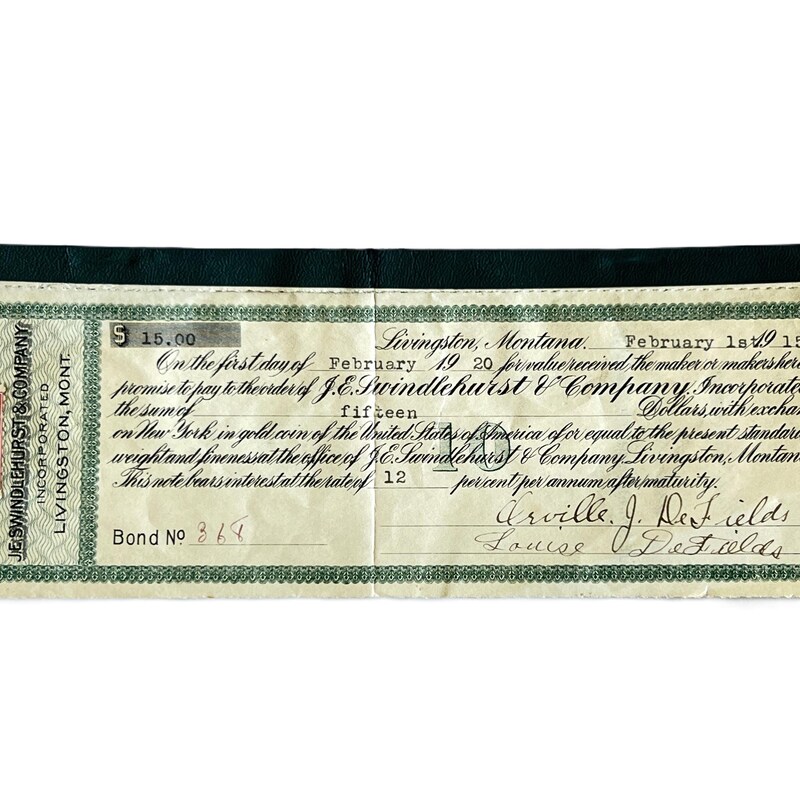 J.E. SWINDLEHURST & COMPANY
INCORPORATED
LIVINGSTON, MONT.
$ 15.00
Livingston, Montana. February 1st 19 15
On the first day of February 19 20 for value received the maker or makers here
promise to pay to the order of J.E. Swindlehurst & Company, Incorporate
the sum of fifteen Dollars, with exchan
on New York in gold coin of the United States of America of or equal to the present standard
weight and fineness at the office of J.E. Swindlehurst & Company, Livingston, Montan
This note bears interest at the rate of 12 per cent per annum after maturity.
10
Orville. J. DeFields
Bond No 368
Louise DeFields